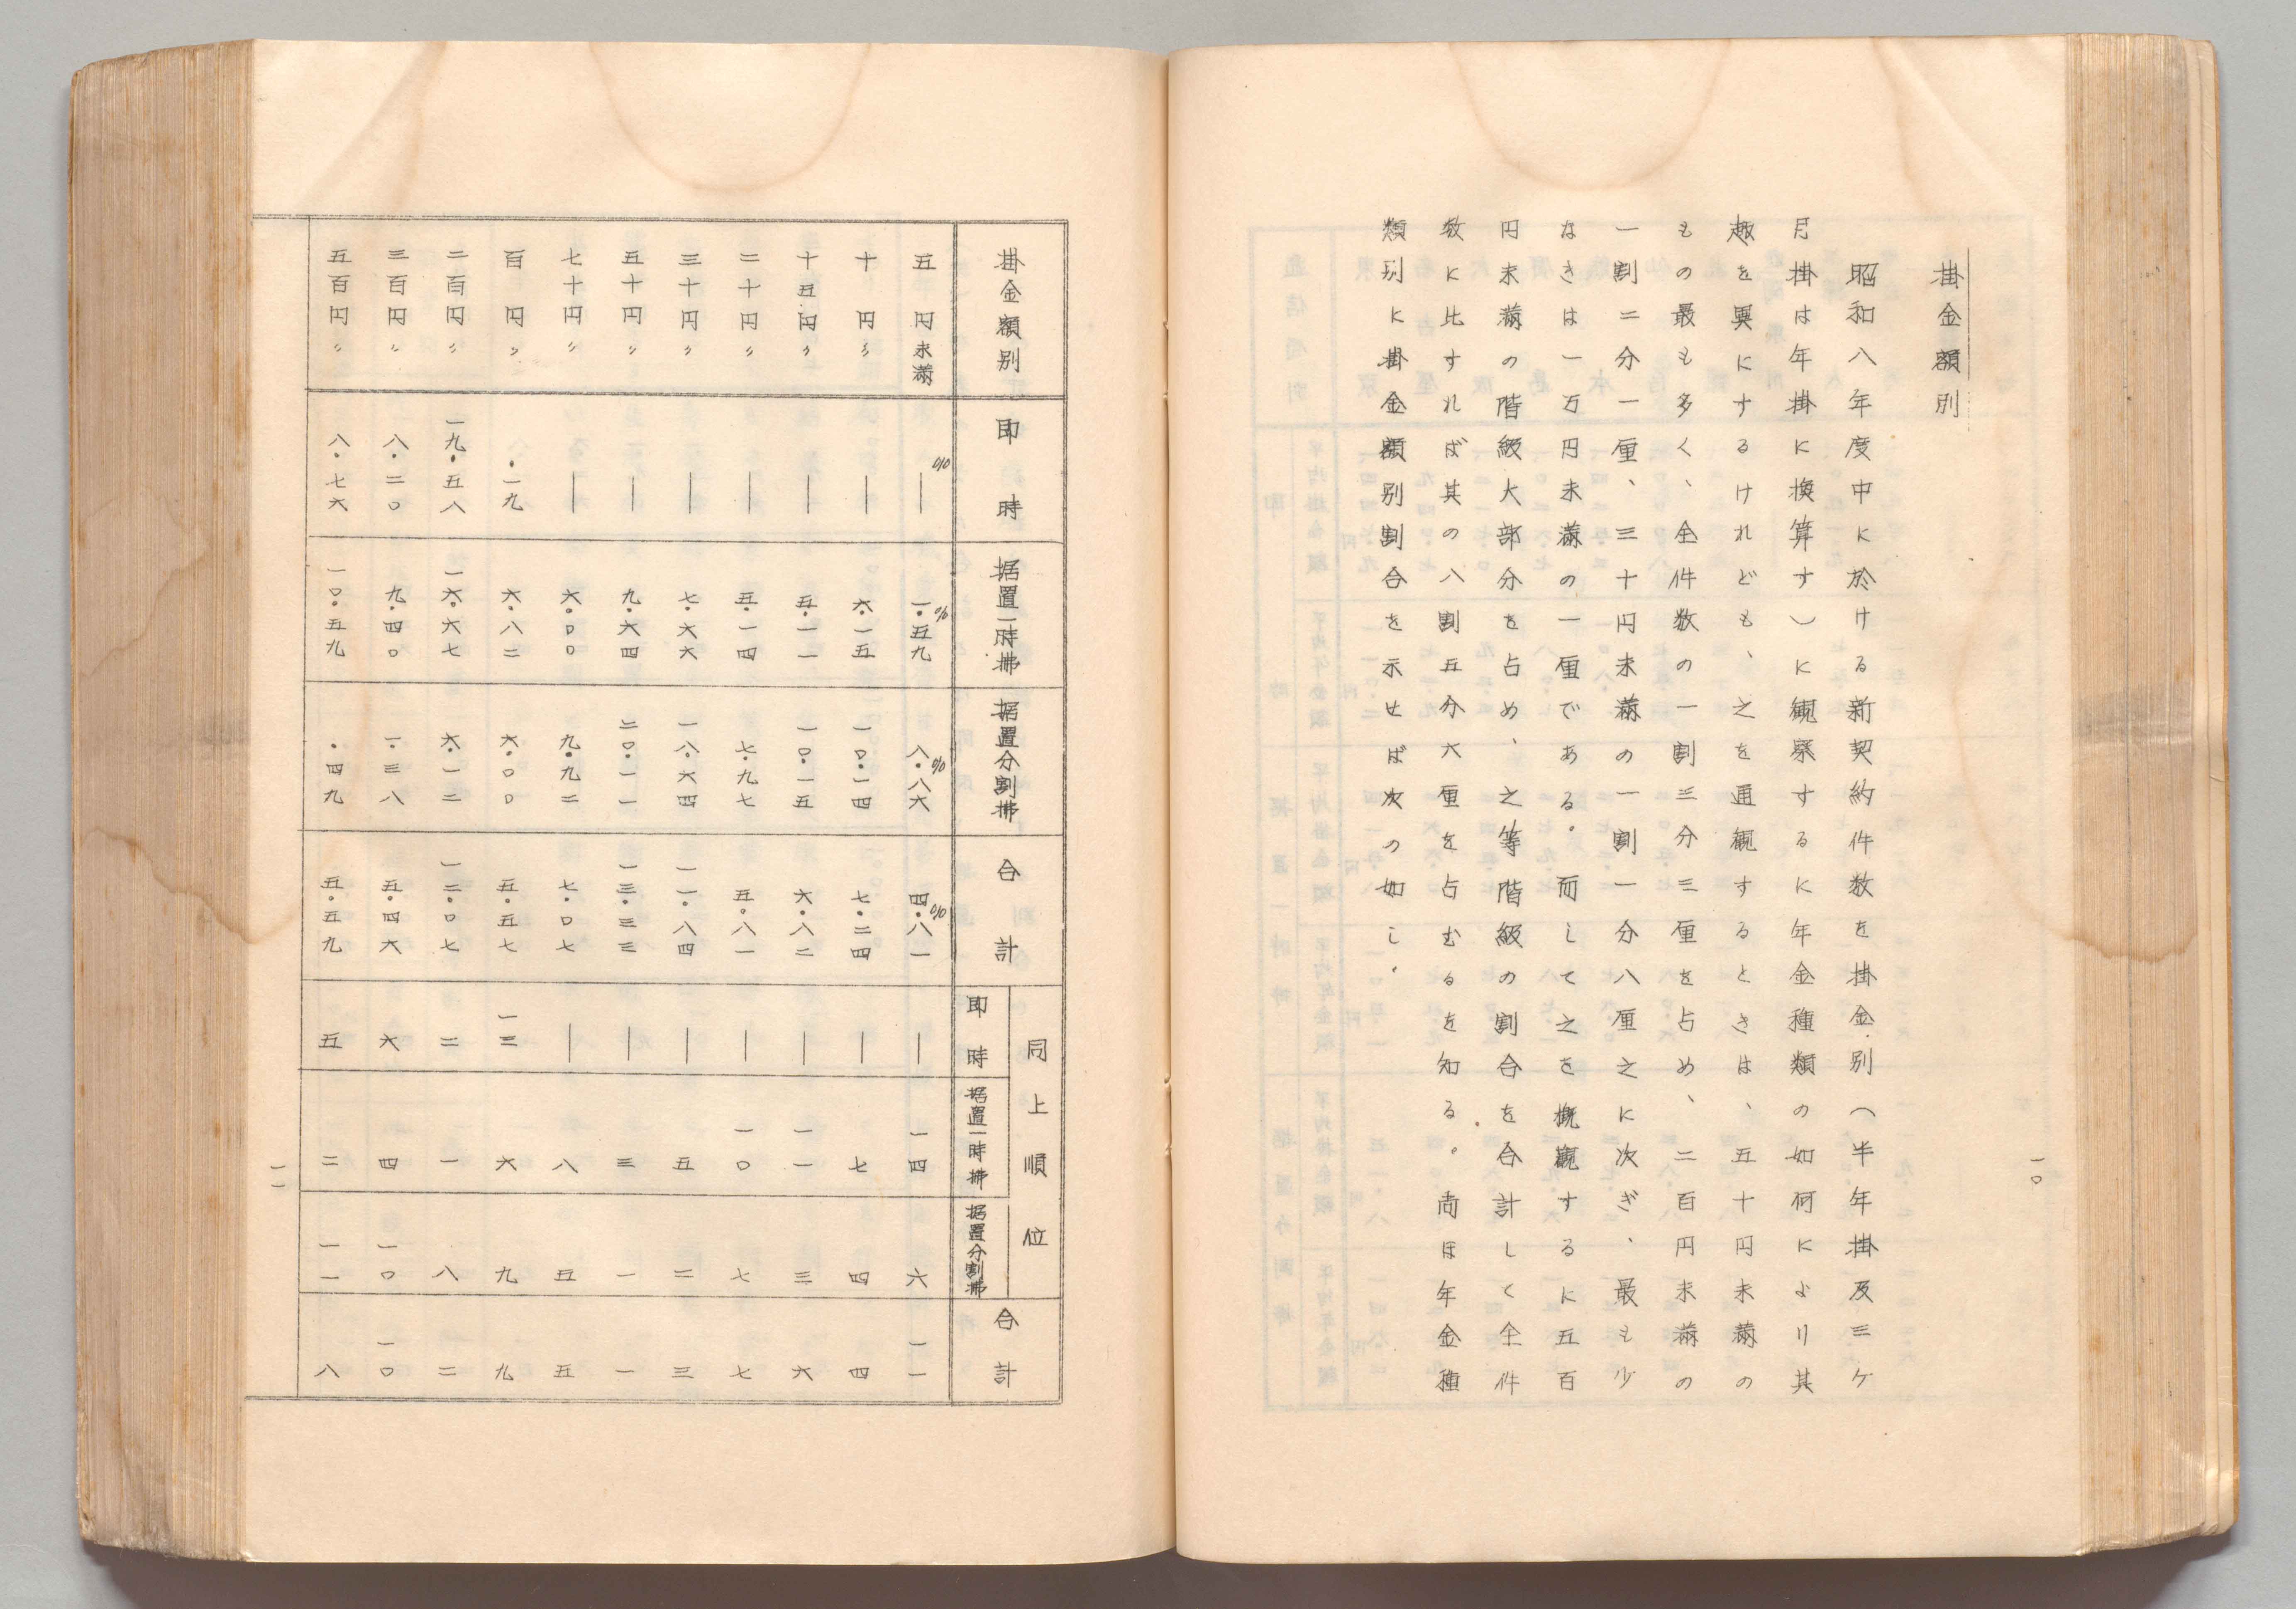 一〇
掛金額別
昭和八年度中に於ける新契約件数を掛金別(半年掛及三ケ
月掛は年掛に換算す)に観察するに年金種類の如何により其
趣を異にするけれども、之を通観するときは、五十円未満の
もの最も多く、全件数の一割三分三厘を占め、二百円未満の
一割二分一厘、三十円未満の一割一分八厘之に次ぎ、最も少
なきは一万円未満の一厘である。而して之を概観するに五百
円未満の階級大部分を占め、之等階級の割合を合計して全件
数に比すれば其の八割五分六厘を占むるを知る。尚ほ年金種
類別に掛金額別割合を示せば次の如し。
掛金額別 即時 据置一時拂 据置分割拂 合計 同上順位 即時 据置一時拂 据置分割拂 合計
五円未満 % ― % 一.五九 % 八.八六 % 四.八一 ― 一四 六 一一
十円〃 ― 六.一五 一〇.一四 七.二四 ― 七 四 四
十五円〃 ― 五.一一 一〇.一五 六.八二 ― 一一 三 六
二十円〃 ― 五.一四 七.九七 五.八一 ― 一〇 七 七
三十円〃 ― 七.六六 一八.六四 一一.八四 ― 五 二 三
五十円〃 ― 九.六四 二〇.一一 一三.三三 ― 三 一 一
七十円〃 ― 六.〇〇 九.九二 七.〇七 ― 八 五 五
百円〃 .一九 六.八二 六.〇〇 五.五七 一三 六 九 九
二百円〃 一九.五八 一六.六七 六.一二 一二.〇七 二 一 八 二
三百円〃 八.二〇 九.四〇 一.三八 五.四六 六 四 一〇 一〇
五百円〃 八.七六 一〇.五九 .四九 五.五九 五 二 一一 八
一一